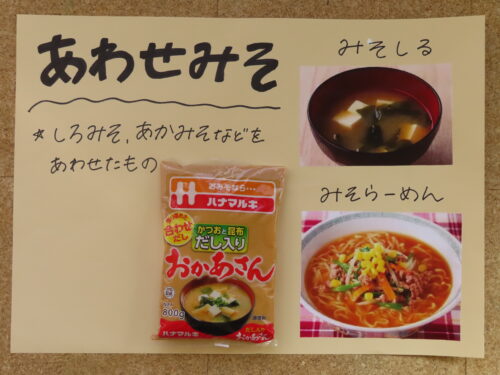 あわせみそ
☆しろみそ、あかみそなどを
あわせたもの
みそしる
みそらーめん
おみそなら…
ハナマルキ
合わせだし
かつおと昆布
だし入り
おかあさん
800g
ハナマルキ
だし入り
おかあさん